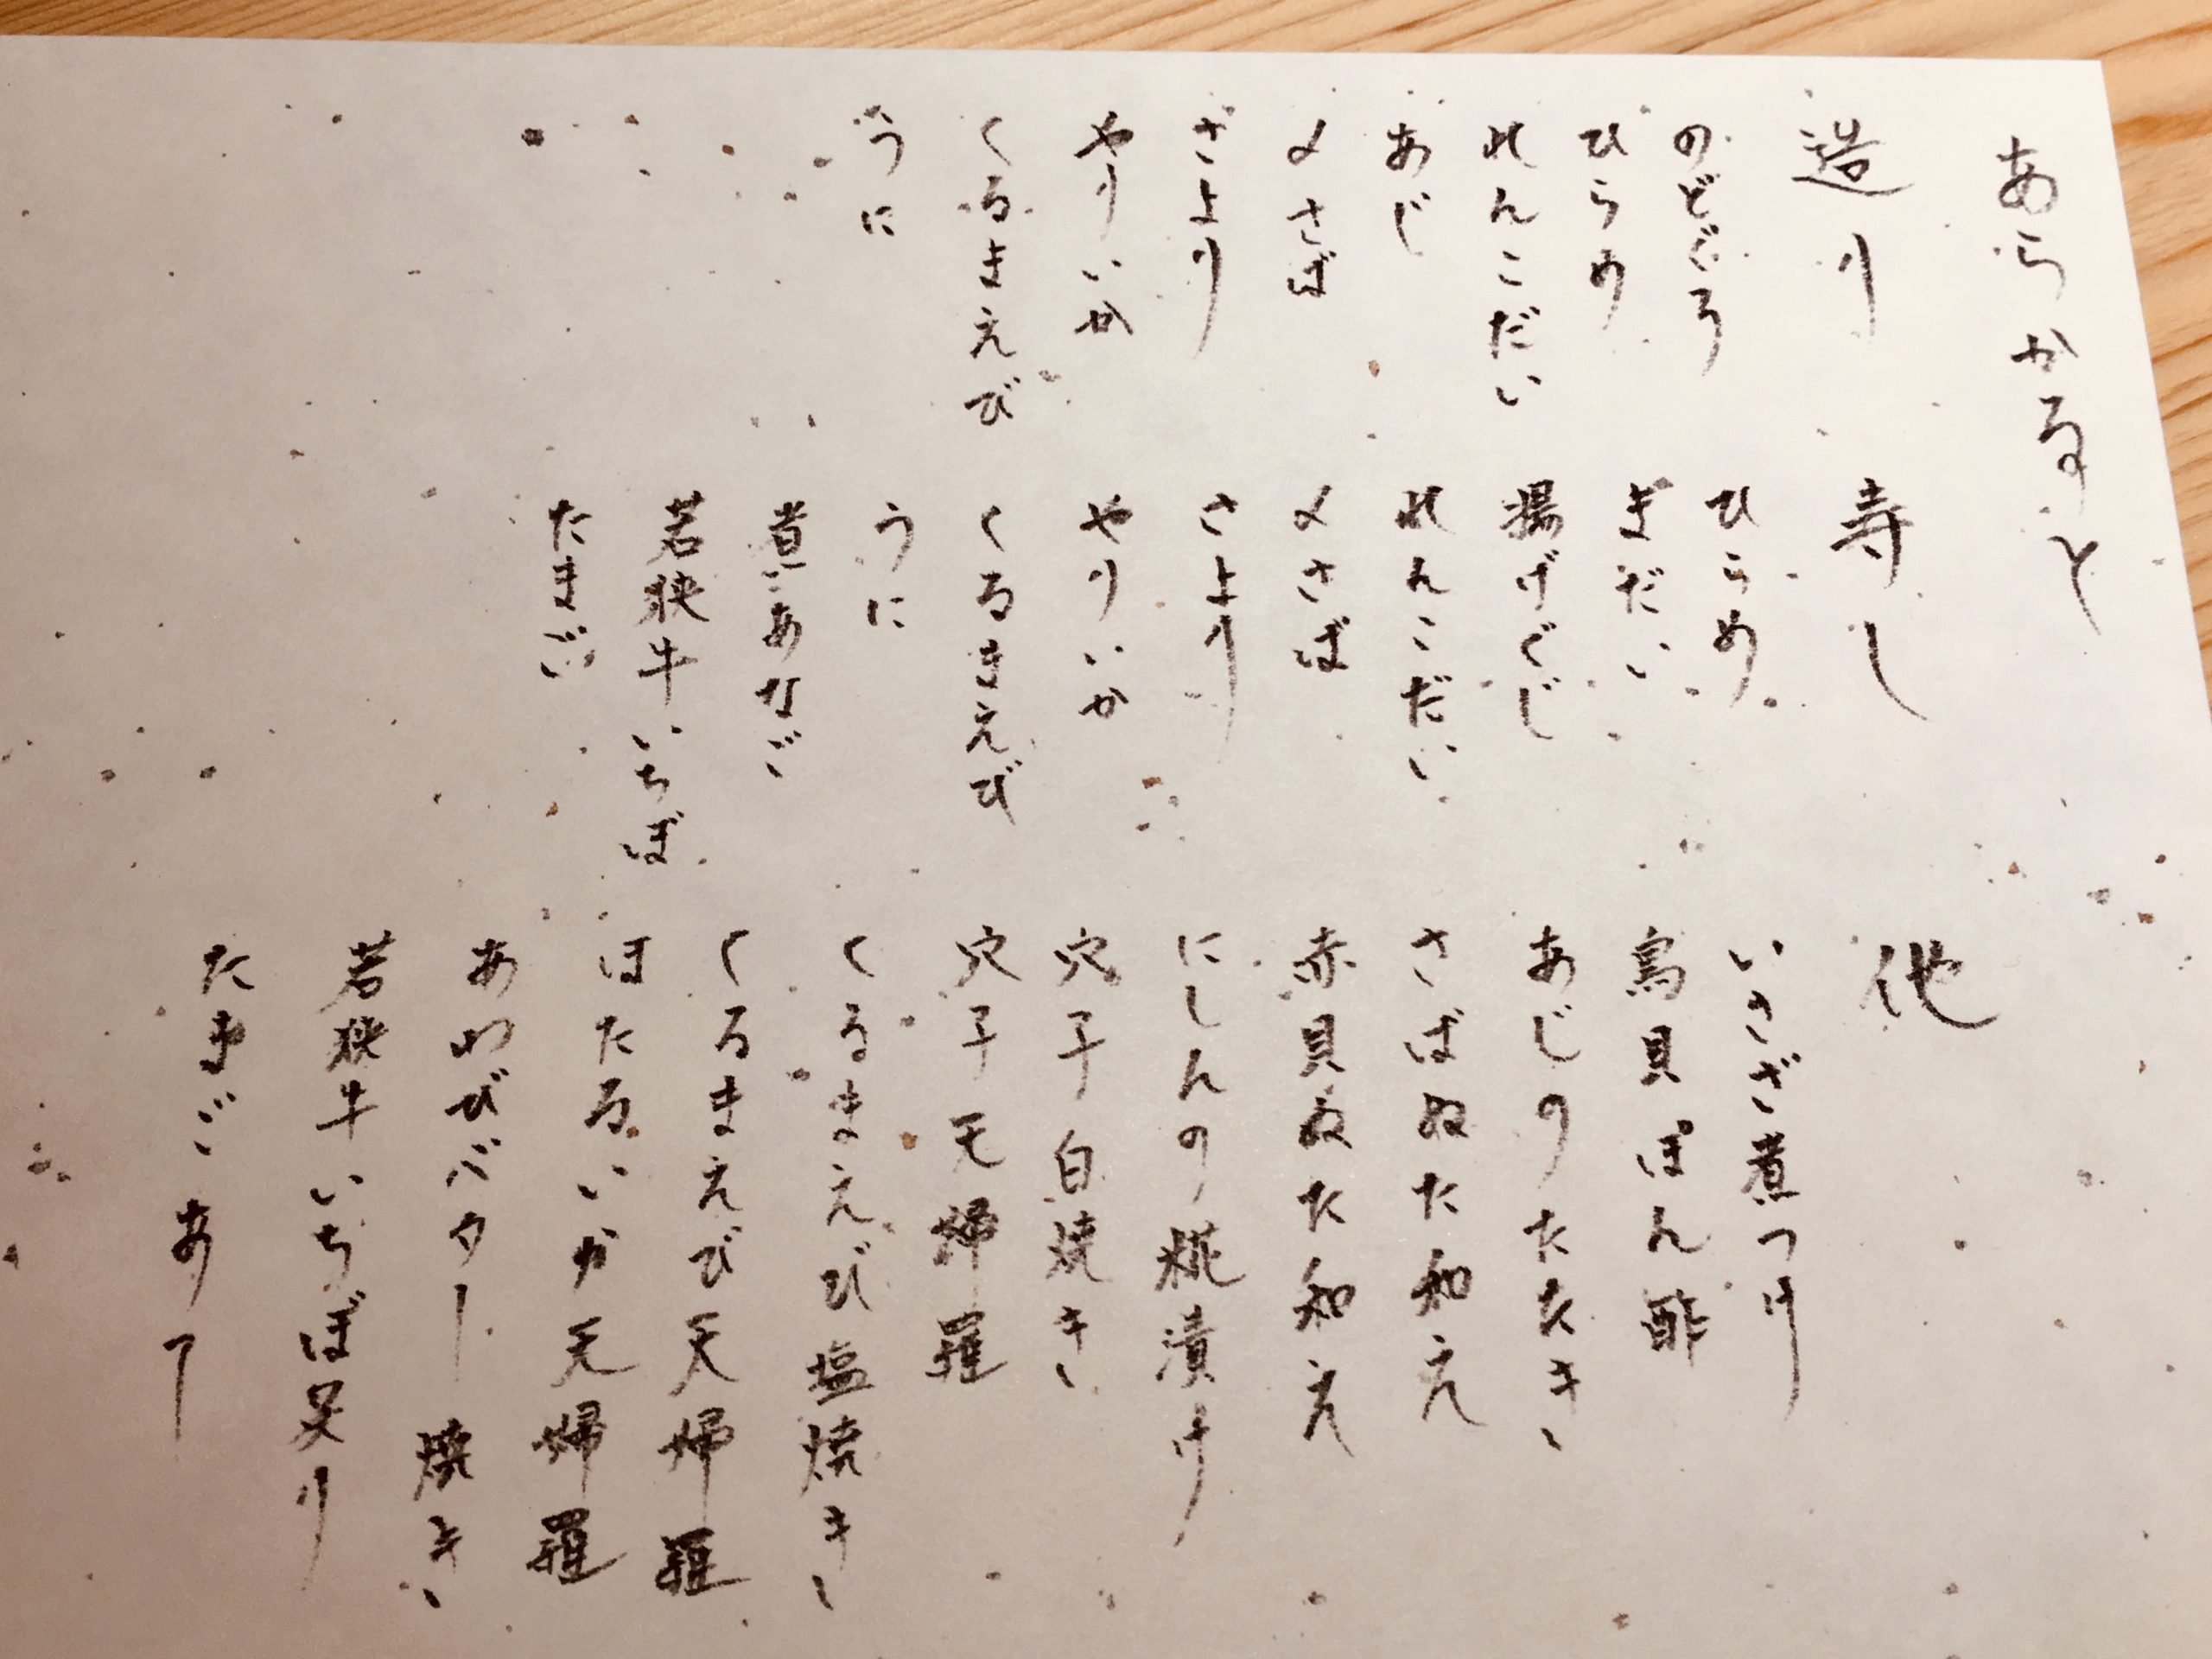 あらかると
造り
のどぐろ
ひらめ
れんこだい
あじ
〆さば
さより
やりいか
くるまえび
うに
寿し
ひらめ
まだい
揚げぐじ
れんこだい
〆さば
さより
やりいか
くるまえび
うに
煮あなご
若狭牛いちぼ
たまご
他
いさざ煮つけ
鳥貝ぽん酢
あじのたたき
さばぬた和え
赤貝ぬた和え
にしんの糀漬け
穴子白焼き
穴子天婦羅
くるまえび塩焼き
くるまえび天婦羅
ほたるいか天婦羅
あわびバター焼き
若狭牛いちぼ炙り
たまごあて